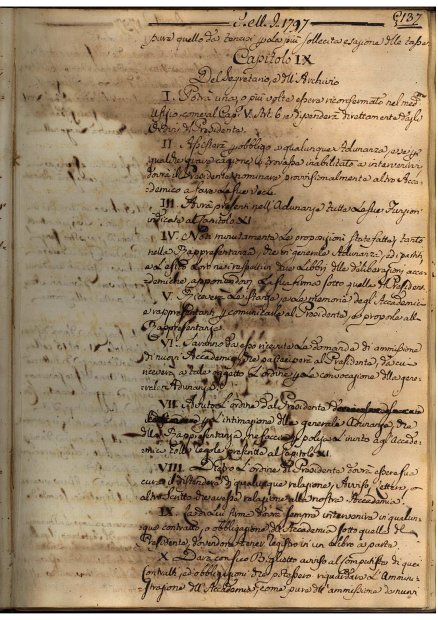 1797
137
pura quello da tenersi per la più sollecita esazione delle tasse
Capitolo IX
Del Segretario, e dell'Archivio
I. Potrà una, o più volte essere riconfermato nel med.
Uffizio, come al Cap. V. Art. 6. e dipenderà direttamente dagli
Ordini del Presidente.
II. Assisterà per obbligo a qualunque Adunanza, e se per
qualche grave cagione si trovasse inabilitato a intervenirvi
dovrà il Presidente nominare provvisionalmente altro Acca-
demico a fare le sue veci.
III. Avrà presenti nell'Adunanze tutte le sue Funzioni
indicate al Capitolo XI
IV. Noti minutamente le proposizioni state fatte, tanto
nella Rappresentanza, che in generale Adunanza, ed i partiti
e l'esito loro nei rispettivi due Libri delle deliberazioni acca-
demiche, apponendovi la sua firma sotto quella del Presidente.
V. Riceverà le istanze, e le memorie degli Accademici
e rappresentanti per comunicarle al Presidente, e proporle alla
Rappresentanza.
VI. Saranno da esso ricevute le domande di ammissione
di nuovi Accademici, che parteciperà al Presidente, da cui
riceverà a tale oggetto l'ordine per la convocazione della gene-
rale Adunanza.
VII. Ricevuto l'ordine dal Presidente
per l'intimazione della generale Adunanza, che
della Rappresentanza, ne faccia per polizza l'invito agli Accade-
mici colle regole prescritte al Capitolo XI.
VIII. Dietro l'ordine del Presidente dovrà essere sua
cura di distendere qualunque relazione, Avviso, Lettera, o
altro Scritto che avesse relazione alla nostra Accademia.
IX. La di lui firma dovrà sempre intervenire in qualun-
que contratto, o obbligazione dell'Accademia sotto quella del
Presidente, dovendone tener registro in un Libro a parte.
X. Darà con suo Biglietto avviso al Computista di quei
Contratti, ed obbligazioni che potessero riguardare l'Ammini-
strazione dell'Accademia, come pure dell'ammissione de nuovi